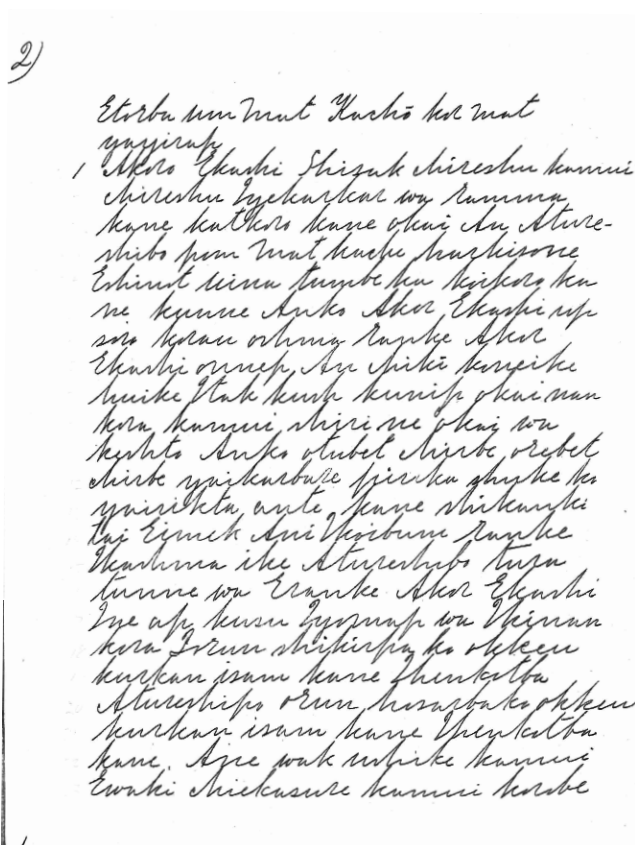 2)
Etorba un mat Kachō kor mat
yayirap
1 Akoro Ekashi Shisak chireshu kamui
chireshu Iyekarkar wa ramma
kane katkoro kane okai An Ature-
shibo pon mat kachi harkisone
Eshinot nina tumbe ka koikoro ka
ne kunne Anko Akor Ekashi up
soro korau oshma ranke Akor
Ekashi onnep An chiki koneike
huike Itak kush kunip okai nan
kora kamui shiri ne okai wa
keshto Anko otubet chirbe orebet
chirbe yaikarbare pirika shuke ko
yairikta ante kane shikanki
tai Eimek Ani Ukoibune ranke
Ukashma ike Atureshibo tura
tunne wa Eranke Akor Ekashi
Iye ap kusu Iyosnap wa Ukinan
kora Iorun shikirpa ko okkeu
kurkan isam kane Ihenkotba
Atureshipo orun hosarba ko okkeu
kurkan isam kane Ihenkotba
kane. Ane wak ushike kamui
Ewaki chiekasure kamui korobe